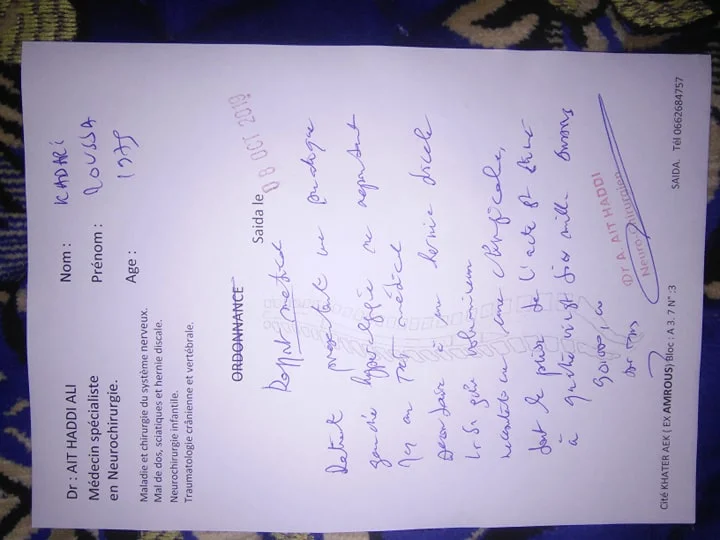 Dr : AIT HADDI ALI
Médecin spécialiste
en Neurochirurgie.
Maladie et chirurgie du système nerveux.
Mal de dos, sciatiques et hernie discale.
Neurochirurgie infantile.
Traumatologie crânienne et vertébrale.
Nom : KADARI
Prénom : MOUSSA
Age : 1979
Saida le 08 OCT 2019
ORDONNANCE
Rapport medical
présentant une
gauche hyperalgique ne répondant
au médical
à une hernie discale
L5 S1
une chirurgicale,
dont le prix de l'acte est
à quatre vingt dix mille
90000,00
Dr A. AIT HADDI
Neuro-chirurgien
Cité KHATER AEK ( EX AMROUS) Bloc : A 3. 7 N° :3 SAIDA. Tél 0662684757